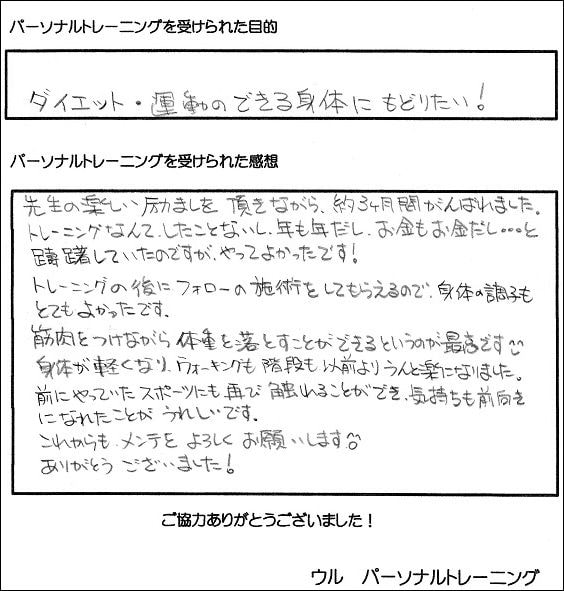 パーソナルトレーニングを受けられた目的
ダイエット・運動のできる身体に もどりたい!
パーソナルトレーニングを受けられた感想
先生の楽しい励ましを 頂きながら、約3ヶ月間がんばれました。
トレーニングなんて、したことないし、年も年だし、お金もお金だし…と
躊躇していたのですが、やってよかったです!
トレーニングの後に フォローの施術をしてもらえるので、身体の調子も
とてもよかったです。
筋肉をつけながら 体重を落とすことができるというのが最高です
身体が軽くなり、ウォーキングも 階段も 以前よりうんと楽になりました。
前にやっていたスポーツにも 再び 触れることができ、気持ちも前向き
になれたことが うれしいです。
これからも メンテを よろしく お願いします
ありがとう ございました!
ご協力ありがとうございました!
ウル パーソナルトレーニング